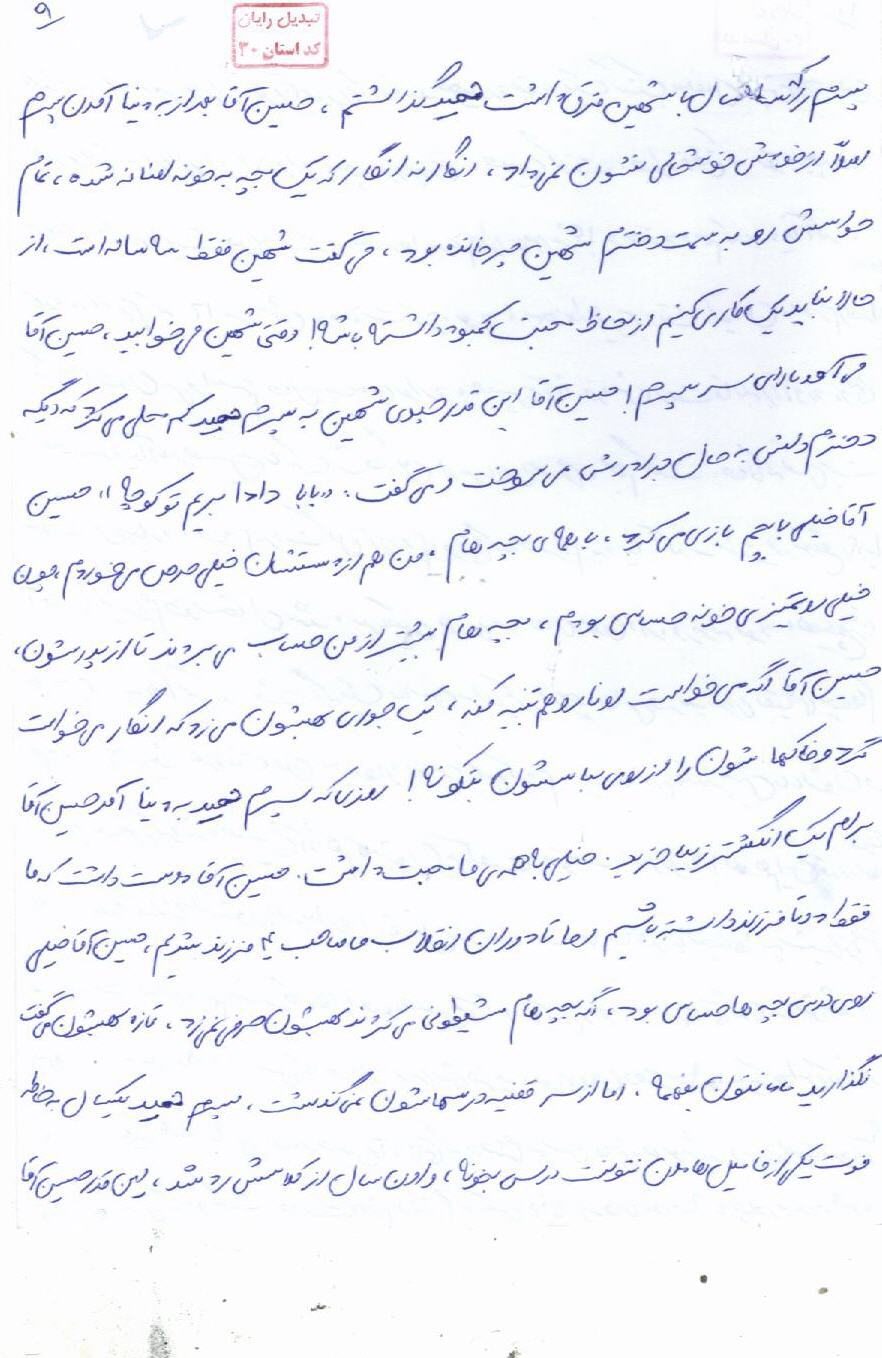 ۹
تبدیل رایان
کد استان ۳۰
پسرم را که سال با شهین فرق داشت حمید گذاشتم ، حسین آقا بعد از به دنیا آمدن پسرم
اصلاً از خودش خوشحالی نشون نمی داد ، انگار نه انگار که یک بچه به خونه اضافه شده ، تمام
حواسش رو به سمت دخترم شهین چرخانده بود ، می گفت شهین فقط ساله است ، از
حالا نباید یک کاری کنیم از لحاظ محبت کمبود داشته باشه ! وقتی شهین می خوابید ، حسین آقا
می آمد بالای سر پسرم ! حسین آقا این قدر جلوی شهین به پسرم حمید کم محلی می کرد که دیگه
دخترم دلش به حال برادرش می سوخت و می گفت : «بابا دادا بریم تو کوچه » حسین
آقا خیلی با بچم بازی می کرد ، با همه ی بچه هام ، من هم از دستشان خیلی حرص می خوردم ، چون
خیلی رو تمیزی خونه حساس بودم ، بچه هام بیشتر از من حساب می بردند تا از پدرشون ،
حسین آقا اگه می خواست اونا رو هم تنبیه کنه ، یک جوری بهشون می زد که انگار می خواست
گرد و خاکها شون را از روی لباسشون بتکونه ! روزی که پسرم حمید به دنیا آمد حسین آقا
برام یک انگشتر زیبا خرید . خیلی با همه ی ما محبت داشت . حسین آقا دوست داشت که ما
فقط دو تا فرزند داشته باشیم اما تا دوران انقلاب ما صاحب ۴ فرزند شدیم ، حسین آقا خیلی
روی درس بچه ها حساس بود ، اگه بچه هام شیطونی می کردند بهشون حرفی نمی زد ، تازه بهشون می گفت
نگذارید مامانتون بفهمه . اما از سر قضیه درسهاشون نمی گذشت ، پسرم حمید یکسال به خاطر
فوت یکی از فامیل هامون نتونست درس بخونه ، و اون سال از کلاسش رد شد ، این قدر حسین آقا